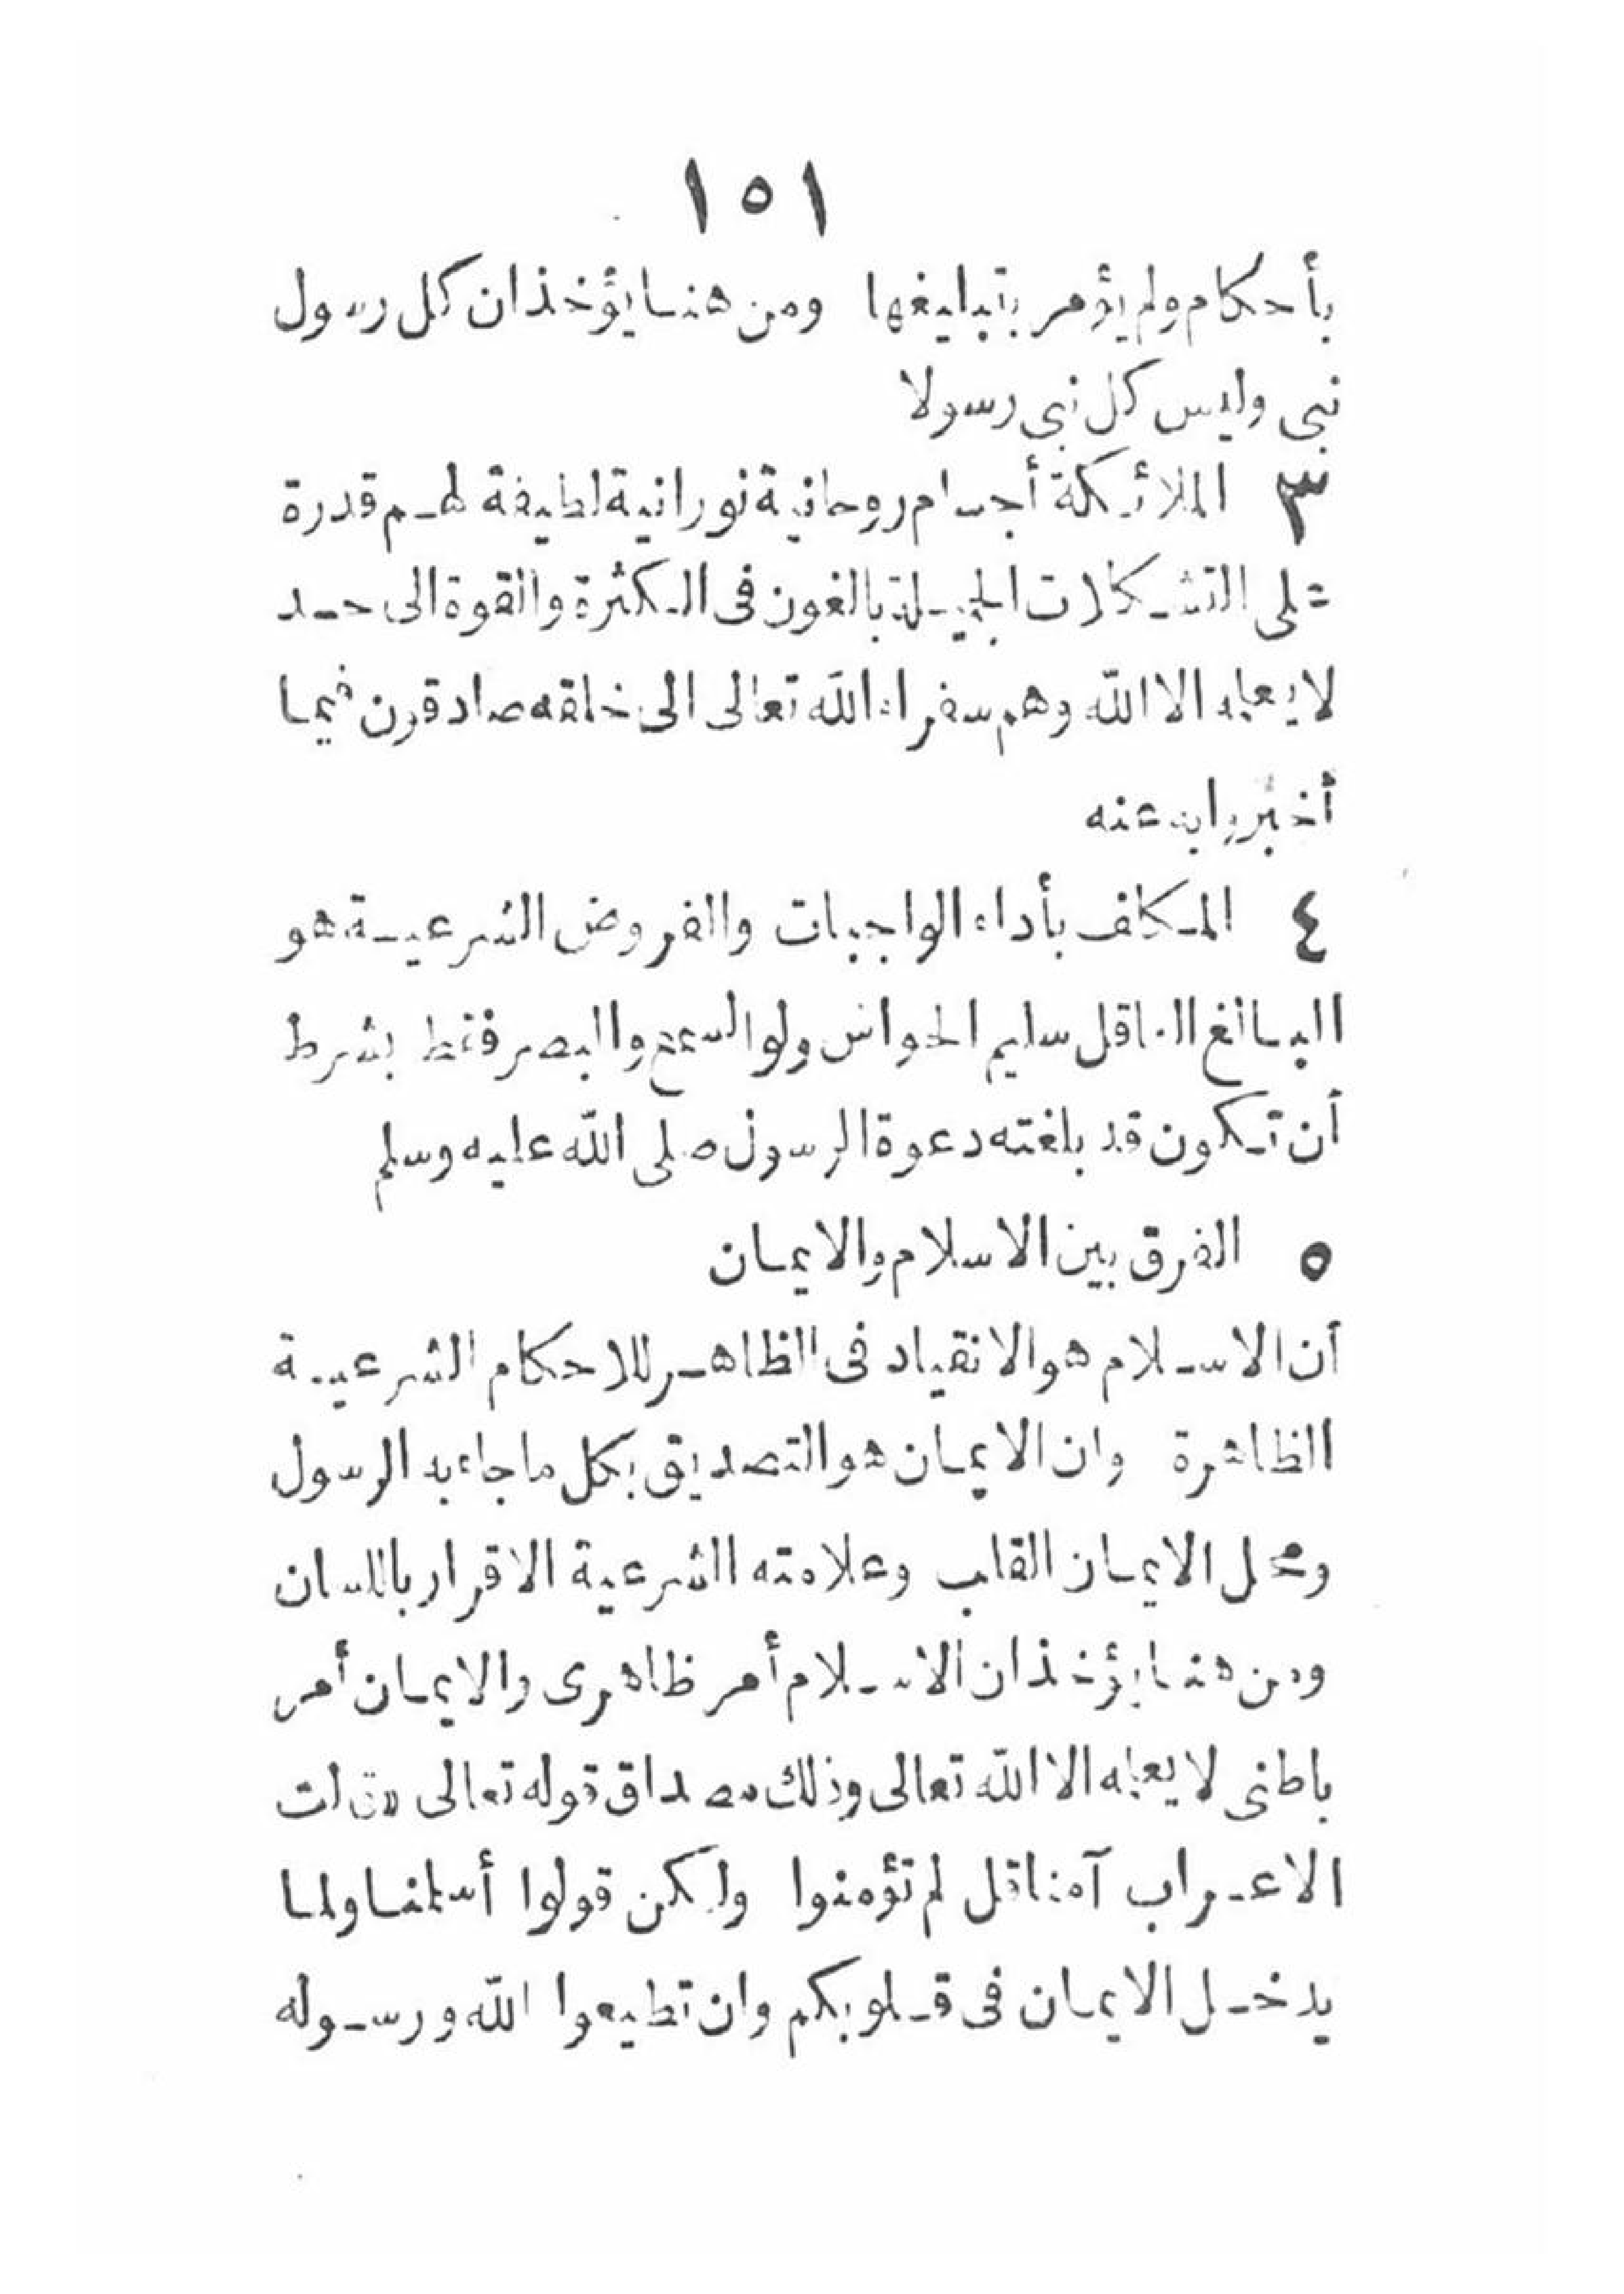 ١٥١
بأحكام ولم يؤمر بتبليغها ومن هنا يؤخذ ان كل رسول
نبى وليس كل نبى رسولا
٣ الملائكة أجسام روحانية نورانية لطيفة لهم قدرة
على التشكلات الجميلة بالغون فى الكثرة والقوة الى حد
لا يعلمه الا الله وهم سفراء الله تعالى الى خلقه صادقون فيما
أخبروا به عنه
٤ المكلف بأداء الواجبات والفروض الشرعية هو
البالغ العاقل سليم الحواس ولو السمع والبصر فقط بشرط
أن تكون قد بلغته دعوة الرسول صلى الله عليه وسلم
٥ الفرق بين الاسلام والايمان
أن الاسلام هو الانقياد فى الظاهر للاحكام الشرعية
الظاهرة وان الايمان هو التصديق بكل ما جاء به الرسول
ومحل الايمان القلب وعلامته الشرعية الاقرار باللسان
ومن هنا يؤخذ ان الاسلام أمر ظاهرى والايمان أمر
باطنى لا يعلمه الا الله تعالى وذلك مصداق قوله تعالى «قالت
الاعراب آمنا قل لم تؤمنوا ولكن قولوا أسلمنا ولما
يدخل الايمان فى قلوبكم وان تطيعوا الله ورسوله